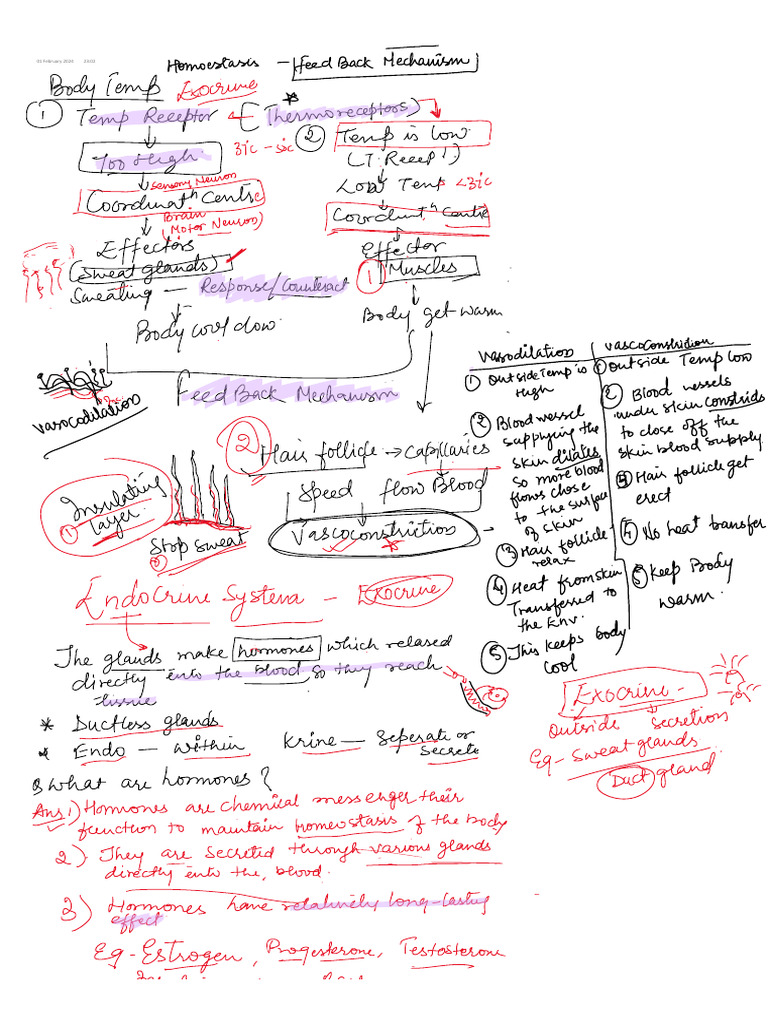 02 February 2024 23:02
Homoestasis - Feed Back Mechanism
Body Temp Exocrine
① Temp Receptor ← [Thermoreceptors)
Too High
Sensory Neuron
Coordinatn Centre
Brain
Motor Neuron)
Effectors
(Sweat glands)
Sweating — Response/Counteract
Body cool down
② Temp is Low
(T. Recep r)
Low Temp <31c
Coordint. n Centre
Effector
① Muscles
Body get warm
Feed Back Mechanism
Vasocodilation
② Hair follicle → Capillaries
Speed flow Blood
Vascoconstriction
Insulating
① layer
Stop Sweat
②
Vasodilation
① Outside Temp is
High
② Blood vessel
supplying the
skin dilates
so more blood
flows close
to the surface
of skin
③ Hair follicle
relax
④ Heat from skin
Transferred to
the Env.
⑤ This keeps body
cool
Vascoconstriction
① Outside Temp low
② Blood vessels
under skin constricts
to close off the
skin blood supply
③ Hair follicle get
erect
④ No heat transfer
⑤ Keep Body
warm.
Endocrine System - Exocrine
The glands make hormones which relased
directly into the blood so they reach
tissue
* Ductless glands
* Endo — within Krine — Seperate or
Secrete
Exocrine -
Outside secretion
Eg- Sweat glands
Duct gland
Q What are hormones?
Ans 1) Hormones are chemical messenger their
function to maintain homeostasis of the body
2) They are secreted through various glands
directly into the, blood.
3) Hormones have relatively long-lasting
effect
Eg- Estrogen, Progesterone, Testosterone